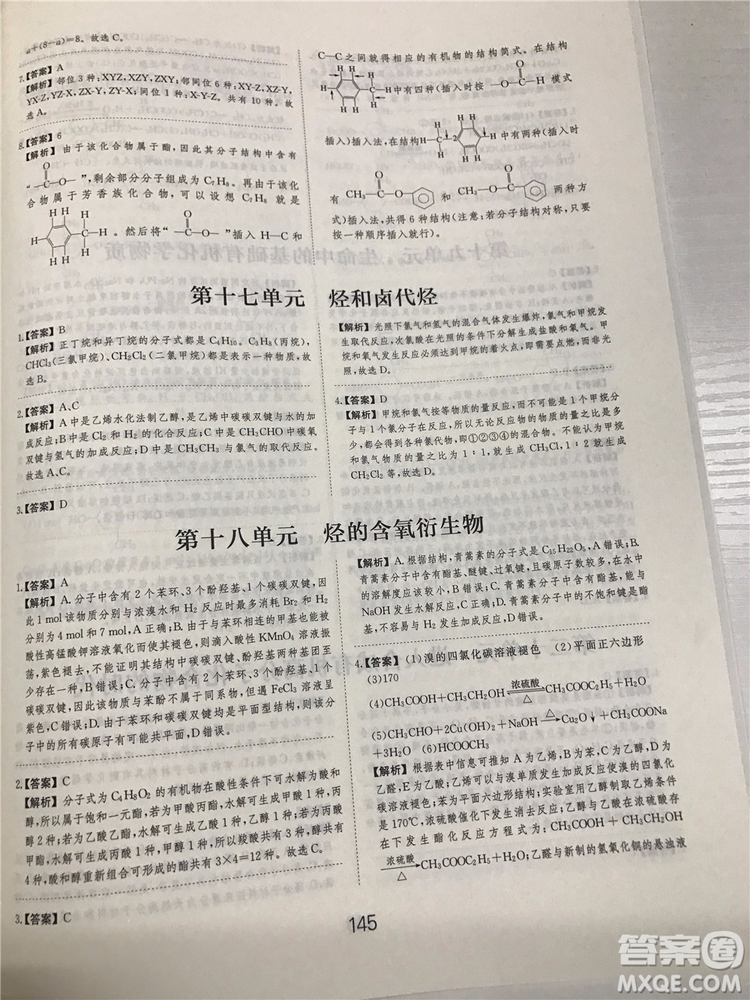 a+(8-a)=8。故选C。
7.【答案】A
【解析】邻位3种:XYZ,XZY,ZXY;邻间位6种:XY-Z,XZ-Y,
YX-Z,YZ-X,ZX-Y,ZY-X;间位1种:X-Y-Z,共有10种。故
选A。
8.【答案】6
【解析】由于该化合物属于酯,因此其分子结构中含有
O
—C—O—,剩余部分分子组成为C₇H₈。再由于该化
合物属于芳香族化合物,可以设想C₇H₈就是
H H H H H H H H
C
。然后将“—C—O—”插入H—C和
O
C—C之间就得相应的有机物的结构简式。在
中有四种(插入时按—O—C—H模式
插入)插入法,共有4种;在
中有两种(插入时
以CH₃—C—O—和CH₃—O—C—两种方
式)插入法,共得6种结构(注意:若分子结构对称,只按
一种顺序插入就行)。
第十七单元 烃和卤代烃
1.【答案】B
【解析】正丁烷和异丁烷的分子式都是C₄H₁₀。C₃H₈(丙烷),
CHCl₃(三氯甲烷)、CH₂Cl₂(二氯甲烷)都只表示一种物质,故
选B。
2.【答案】A、C
【解析】A中是乙烯水化法制乙醇,是乙烯中碳碳双键与水的加
成反应;B中是Cl₂和H₂的化合反应;C中是CH₃CHO中碳氧
双键与氢气的加成反应,D中是CH₃CH₃与氯气的取代反应。
故选A、C。
3.【答案】D
【解析】光照下氯气和氢气的混合气体发生爆炸,氯气和甲烷发
生了取代反应,次氯酸在光照的条件下分解生成盐酸和氧气。甲
烷与氧气发生反应必须达到甲烷的着火点,即需要点燃,才能反
应,故选D。
4.【答案】D
【解析】甲烷和氯气按等物质的量反应,而不是1个甲烷与1个
分子氯气之间的反应,所以无论反应物的物质的量之比是多少,
都会得到各种氯代物,即①②③④的混合物。不能认为甲烷
和氯气1∶1反应,生成CH₃Cl,1∶2反应时,就生成
CH₂Cl₂等。故选D。
第十八单元 烃的含氧衍生物
1.【答案】A
【解析】A.分子中含有2个苯环、3个酚羟基、1个碳碳双键,因
此1 mol该物质分别与浓溴水和H₂反应时最多消耗Br₂和H₂
分别为4 mol和7 mol,A正确;B.与苯环相连的甲基也能被
酸性高锰酸钾溶液氧化而使其褪色,滴入酸性KMnO₄溶液振
荡,紫色褪去,不能证明其结构中存在碳碳双键,B错误;C.至
少存在一种,分子中含有2个苯环、3个酚羟基、1个碳碳双键,
因此该物质与苯酚不属于同系物,但遇FeCl₃溶液呈
紫色,C错误;D.由于苯环和碳碳双键均是平面型结构,因此分
子中的所有碳原子有可能共平面,D错误。
2.【答案】C
【解析】分子式为C₄H₈O₂的有机物在酸性条件下可水解为酸和
醇,属于饱和一元酯,若为甲酸丙酯,水解可生成甲酸1种酸和
丙醇2种;若为乙酸乙酯,水解可生成乙酸1种和乙醇1种;若
为丙酸甲酯,水解可生成丙酸1种、甲醇1种,所以羧酸共有3种,醇共有
4种,酸和醇重新组合可形成的酯共有3×4=12种。故选C。
3.【答案】C
【解析】A.根据结构,青蒿素的分子式是C₁₅H₂₂O₅,A错误;B.
青蒿素分子中含有酯基、醚键、过氧键,因此在水
的溶解度应该较小,B错误;C.由于分子中含有酯基,能与
NaOH发生水解反应,C正确;D.青蒿素分子中的不饱和键是酯
基,不容易与H₂发生加成反应,D错误。
4.【答案】(1)溴的四氯化碳溶液褪色 (2)平面正六边形
(3)170
(4)CH₃COOH+CH₃CH₂OH 浓硫酸 △ CH₃COOC₂H₅+H₂O
(5)CH₃CHO+2Cu(OH)₂+NaOH △ Cu₂O↓+CH₃COONa
+3H₂O (6)HCOOCH₃
【解析】根据表中信息可推知A为乙烯,B为苯,C为乙醇,D为
乙醛,E为乙酸。乙烯可以与溴单质发生加成反应,使溴的四氯
化碳溶液褪色;苯为平面六边形结构;实验室用乙醇制取乙烯
是170℃,浓硫酸催化下发生消去反应;乙醇与乙酸在浓硫酸存
在下发生酯化反应方程式为:CH₃COOH+CH₃CH₂OH
浓硫酸 △ CH₃COOC₂H₅+H₂O;乙醛与新制的氢氧化铜的悬浊液
145
答案圈
MXQE.COM